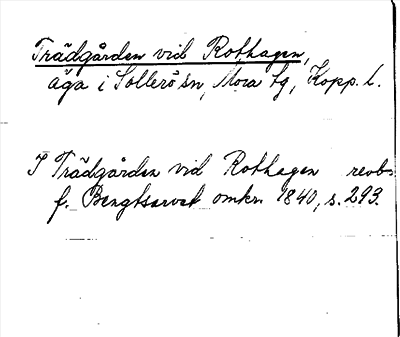 Trädgården vid Rothagen,
äga i Sollerö sn, Mora tg, Kopp. l.
I Trädgården vid Rothagen reobs
f. Bengtsarvet omkr. 1840, s. 293.